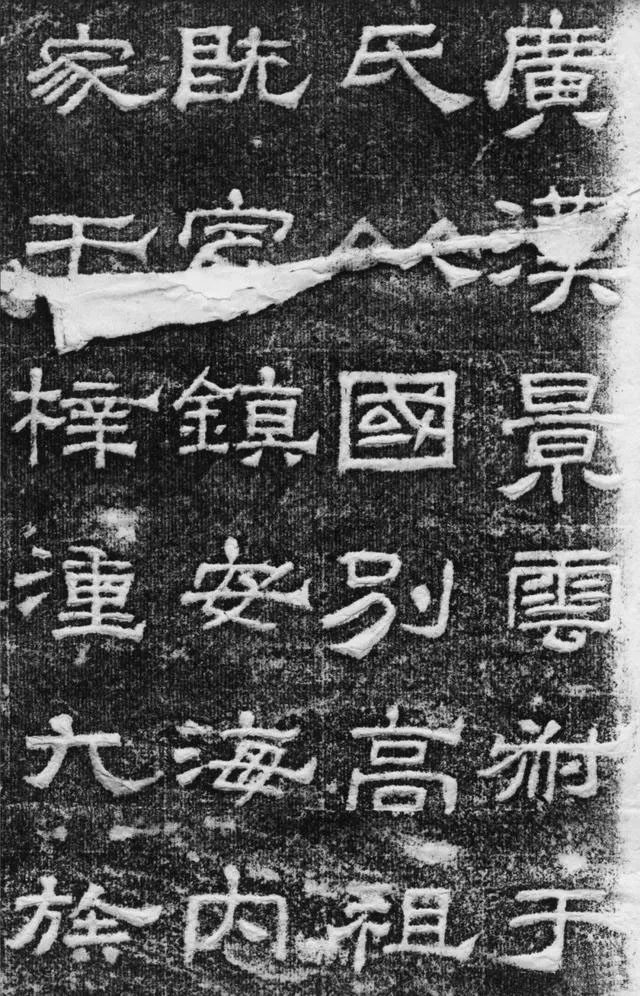 廣漢景雲叔于
氏以國別高祖
既定鎮安海内
家于梓湩九族